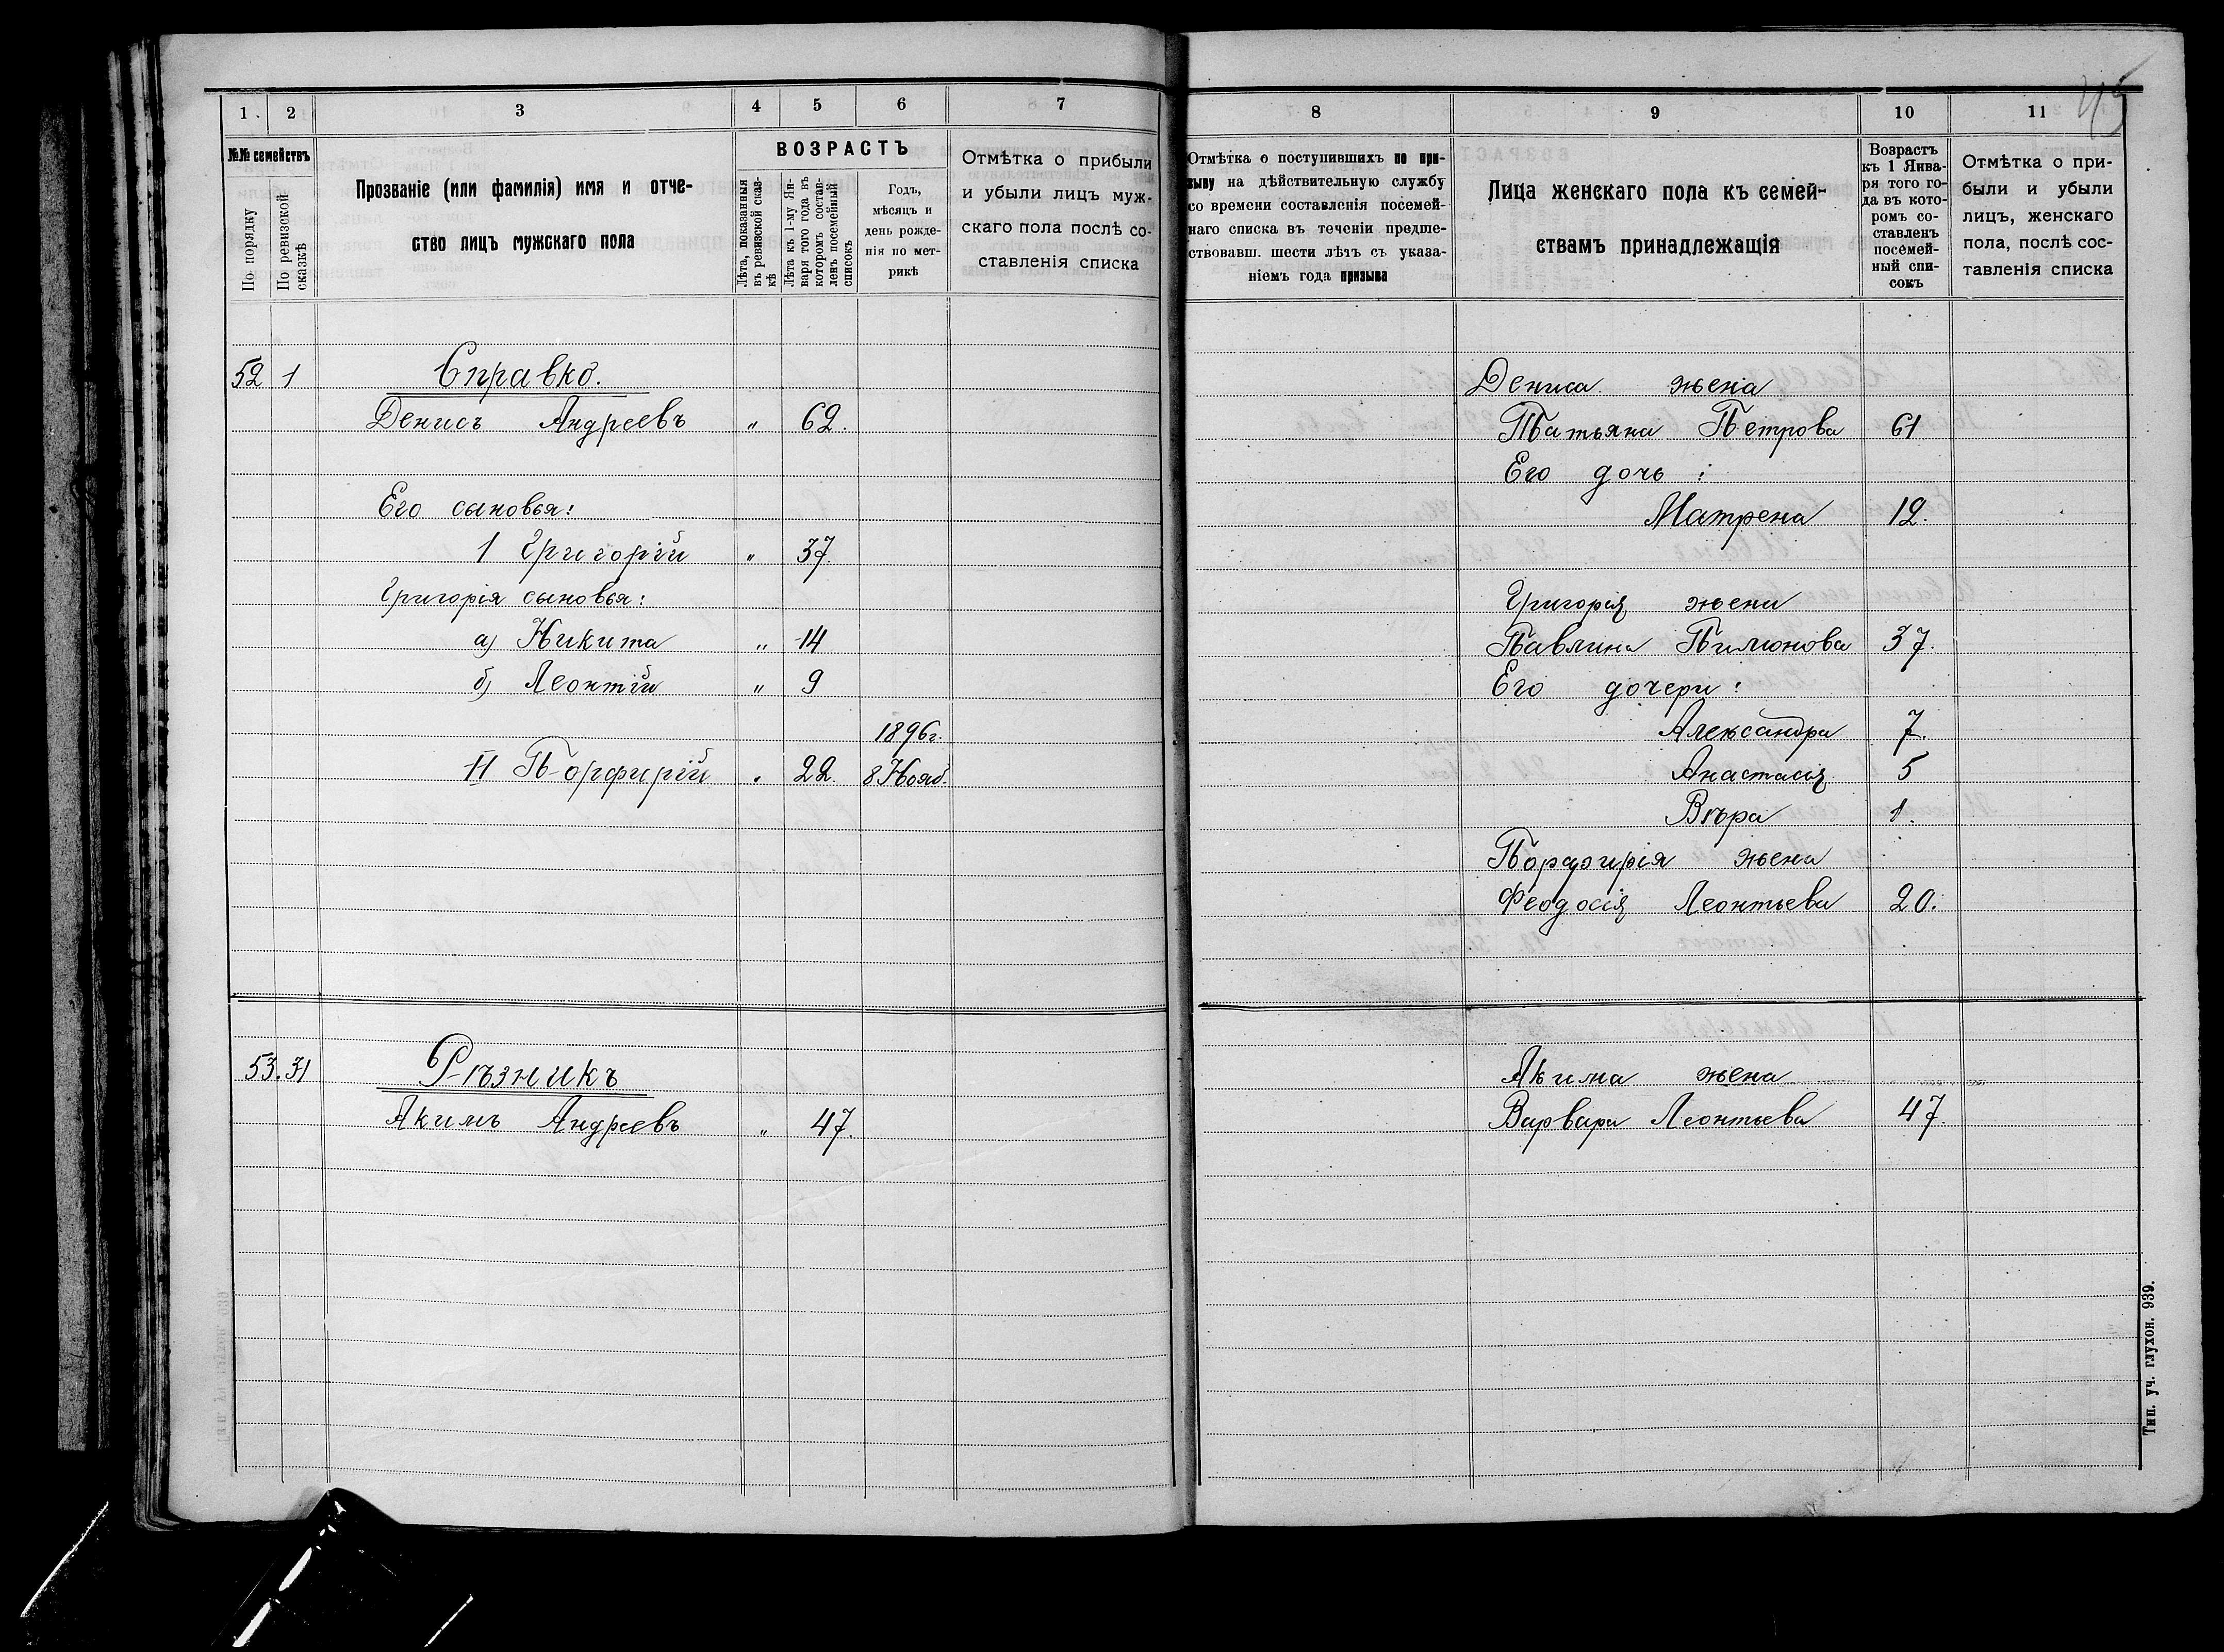 1. 2 3 4 5 6 7
№№ семействъ
По порядку
По ревизской сказкѣ
Прозваніе (или фамилія) имя и отче-
ство лицъ мужскаго пола
ВОЗРАСТЪ
Лѣта, показанныя
въ ревизской сказ-
кѣ
Лѣта къ 1-му Ян-
варя того года въ
которомъ состав-
ленъ посемейный
списокъ
Годъ,
мѣсяцъ и
день рожде-
нія по мет-
рикѣ
Отмѣтка о прибыли
и убыли лицъ муж-
скаго пола послѣ со-
ставленія списка
52 1 Справко.
Денисъ Андреевъ " 62.
Его сыновья:
1 Григорій " 37.
Григорія сыновья:
а) Никита " 14
б) Леонтій " 9
1896г.
II Порфирій " 22. 8 Нояб.
53. 31 Рѣзникъ
Акимъ Андреевъ " 47.
8 9 10 11
45
Отмѣтка о поступившихъ по при-
зыву на дѣйствительную службу
со времени составленія посемей-
наго списка въ теченіи предше-
ствовавш. шести лѣтъ съ указа-
ніемъ года призыва
Лица женскаго пола къ семей-
ствамъ принадлежащія
Возрастъ
къ 1 Янва-
ря того го-
да въ кото-
ромъ со-
ставленъ
посемей-
ный спи-
сокъ
Отмѣтка о при-
были и убыли
лицъ, женскаго
пола, послѣ сос-
тавленія списка
Дениса жена
Татьяна Петрова 61
Его дочь:
Матрена 12.
Григорія жена
Павлина Пимонова 37.
Его дочери:
Александра 7.
Анастасія 5
Вѣра 1.
Порфирія жена
Феодосія Леонтьева 20.
Акима жена
Варвара Леонтьева 47.
Тип. уч. глухон. 939.